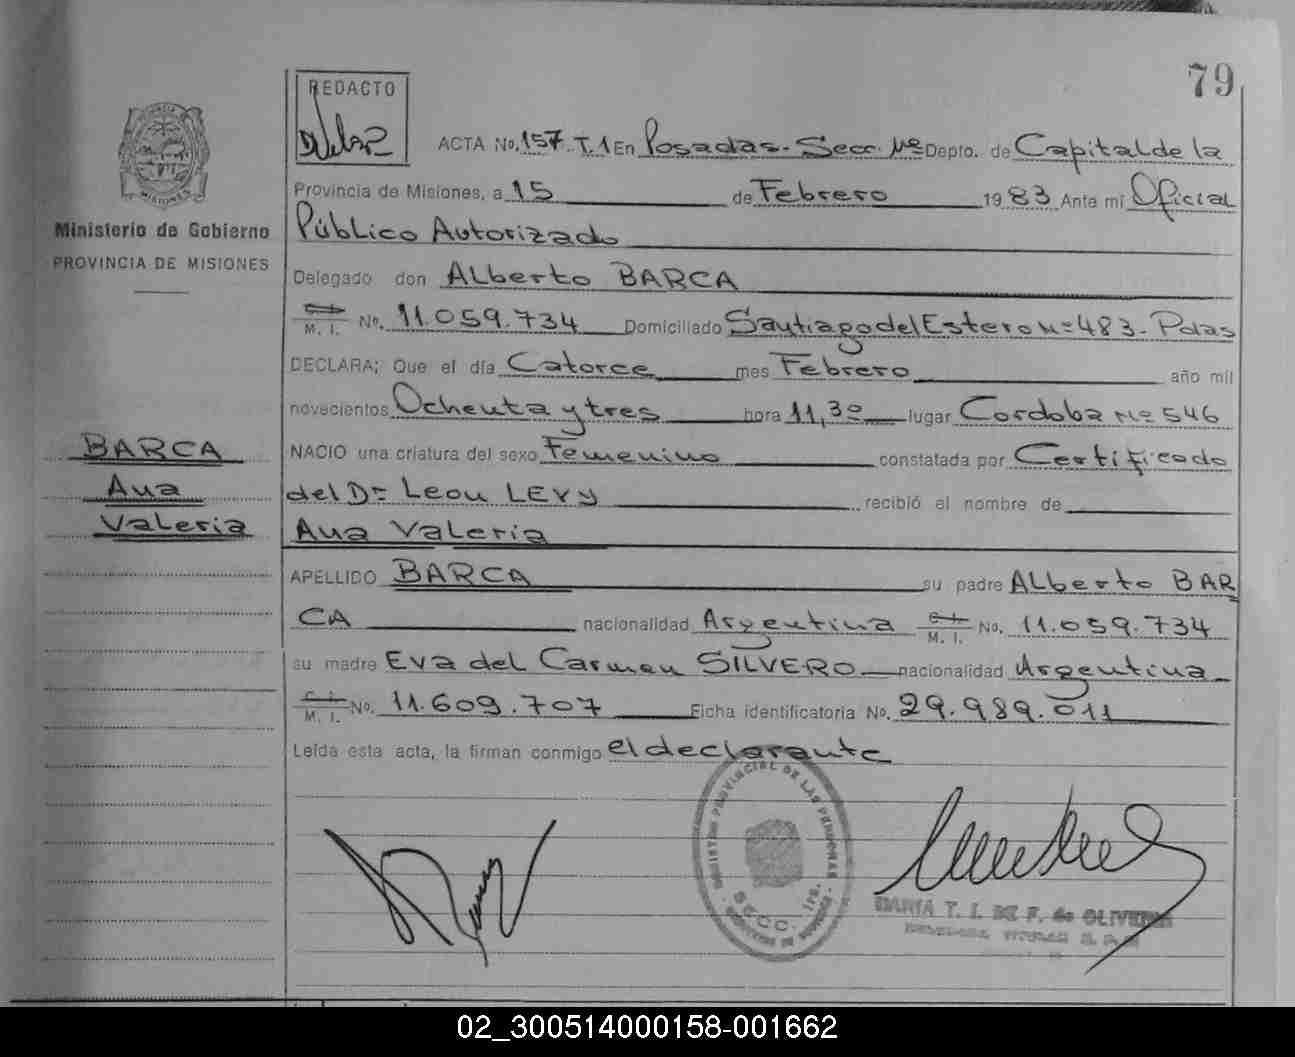 79
REDACTO
ACTA No. 157. T. 1 En Posadas. Secc. 1ra Depto. de Capital de la
Provincia de Misiones, a 15 de Febrero 1983 Ante mi Oficial
Público Autorizado
Delegado don ALberto BARCA
C. I.
M. I. No. 11.059.734 Domiciliado Santiago del Estero Nº 483. Pdas
DECLARA; Que el día Catorce mes Febrero año mil
novecientos Ochenta y tres hora 11,30 lugar Cordoba Nº 546
NACIO una criatura del sexo Femenino constatada por Certificado
del Dr Leon LEVY recibió el nombre de
Ana Valeria
APELLIDO BARCA su padre ALberto BAR
CA nacionalidad Argentina C. I. M. I. No. 11.059.734
su madre Eva del Carmen SILVERO nacionalidad Argentina
C. I.
M. I. No. 11.609.707 Ficha identificatoria No. 29.989.011
Leída esta acta, la firman conmigo el declarante
PROVINCIA DE MISIONES
Ministerio de Gobierno
PROVINCIA DE MISIONES
BARCA
Ana
Valeria
REGISTRO PROVINCIAL DE LAS PERSONAS
SECC. 1ra.
MARIA T. I. DE F. de OLIVEIRA
02_300514000158-001662